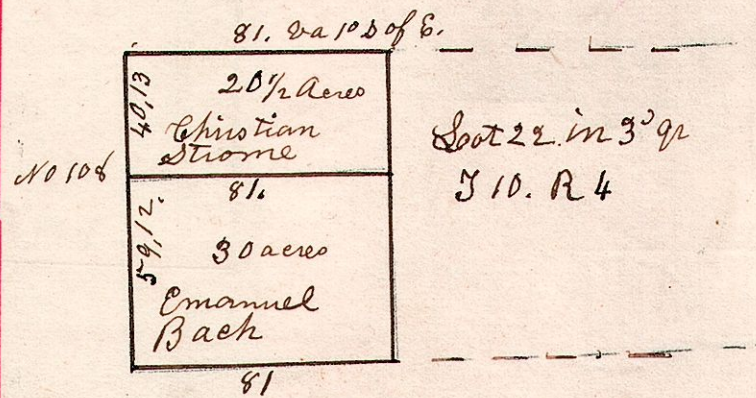 81. va 1° S of E.
40,13
20 1/2 Acres
Christian
Strome
No 108
81.
59,12.
30 acres
Emanuel
Bach
81
Lot 22. in 3d qr
T 10. R 4